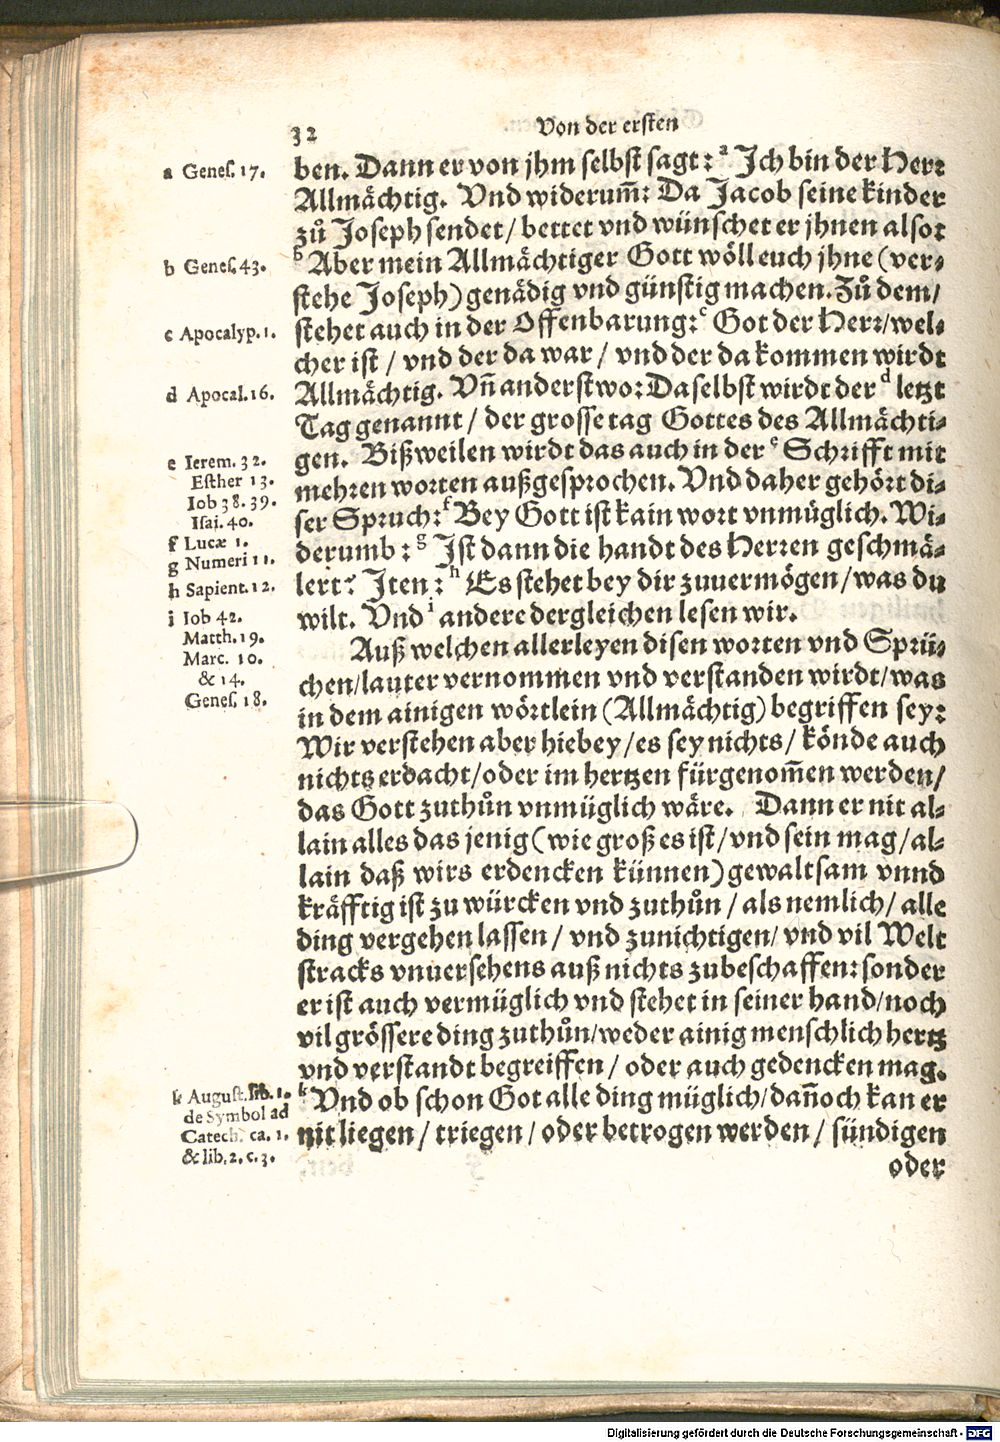 32 Von der ersten
ben. Dann er von jhm selbst sagt: a Jch bin der Herr
Allmächtig. Vnd widerum̃: Da Jacob seine kinder
zů Joseph sendet / bettet vnd wünschet er jhnen also:
b Aber mein Allmächtiger Gott wöll euch jhne (ver-
stehe Joseph) genädig vnd günstig machen. Zů dem /
stehet auch in der Offenbarung: c Got der Herr / wel-
cher ist / vnd der da war / vnd der da kommen wirdt
Allmächtig. Vñ anderstwo: Daselbst wirdt der d letzt
Tag genannt / der grosse tag Gottes des Allmächti-
gen. Bißweilen wirdt das auch in der e Schrifft mit
mehren worten außgesprochen. Vnd daher gehört di-
ser Spruch: f Bey Gott ist kain wort vnmüglich. Wi-
derumb: g Jst dann die handt des Herren geschmä-
lert? Jten: h Es stehet bey dir zuuermögen / was du
wilt. Vnd i andere dergleichen lesen wir.
Auß welchen allerleyen disen worten vnd Sprü-
chen / lauter vernommen vnd verstanden wirdt / was
in dem ainigen wörtlein (Allmächtig) begriffen sey:
Wir verstehen aber hiebey / es sey nichts / könde auch
nichts erdacht / oder im hertzen fürgenom̃en werden /
das Gott zuthůn vnmüglich wäre. Dann er nit al-
lain alles das jenig (wie groß es ist / vnd sein mag / al-
lain daß wirs erdencken künnen) gewaltsam vnnd
kräfftig ist zu würcken vnd zuthůn / als nemlich / alle
ding vergehen lassen / vnd zunichtigen / vnd vil Welt
stracks vnuersehens auß nichts zubeschaffen: sonder
er ist auch vermüglich vnd stehet in seiner hand / noch
vil grössere ding zuthůn / weder ainig menschlich hertz
vnd verstandt begreiffen / oder auch gedencken mag.
k Vnd ob schon Got alle ding müglich / dañoch kan er
nit liegen / triegen / oder betrogen werden / sündigen
oder
a Genes. 17.
b Genes. 43.
c Apocalyp. 1.
d Apocal. 16.
e Ierem. 32.
Esther 13.
Iob 38. 39.
Isai. 40.
f Lucæ 1.
g Numeri 11.
h Sapient. 12.
i Iob 42.
Matth. 19.
Marc. 10.
& 14.
Genes. 18.
k August. lib. 1.
de Symbol ad
Catech. ca. 1.
& lib. 2. c. 3.
Digitalisierung gefördert durch die Deutsche Forschungsgemeinschaft - DFG